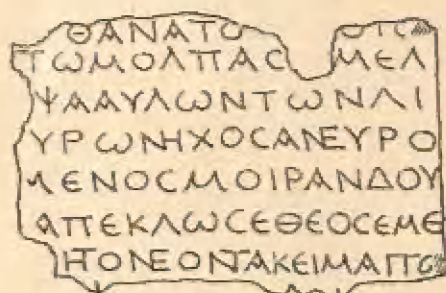 ΘΑΝΑΤΟ ΟΤΣ
ΤΩΜΟΛΠΑϹ ΜΕΛ
ΨΑΑΥΛΩΝΤΩΝΛΙ
ΥΡΩΝΗΧΟϹΑΝΕΥΡΟ
ΜΕΝΟϹΜΟΙΡΑΝΔΟΥ
ΑΠΕΚΛΩϹΕΘΕΟϹΕΜΕ
ΗΤΟΝΕΟΝΤΑΚΕΙΜΑΠΟ